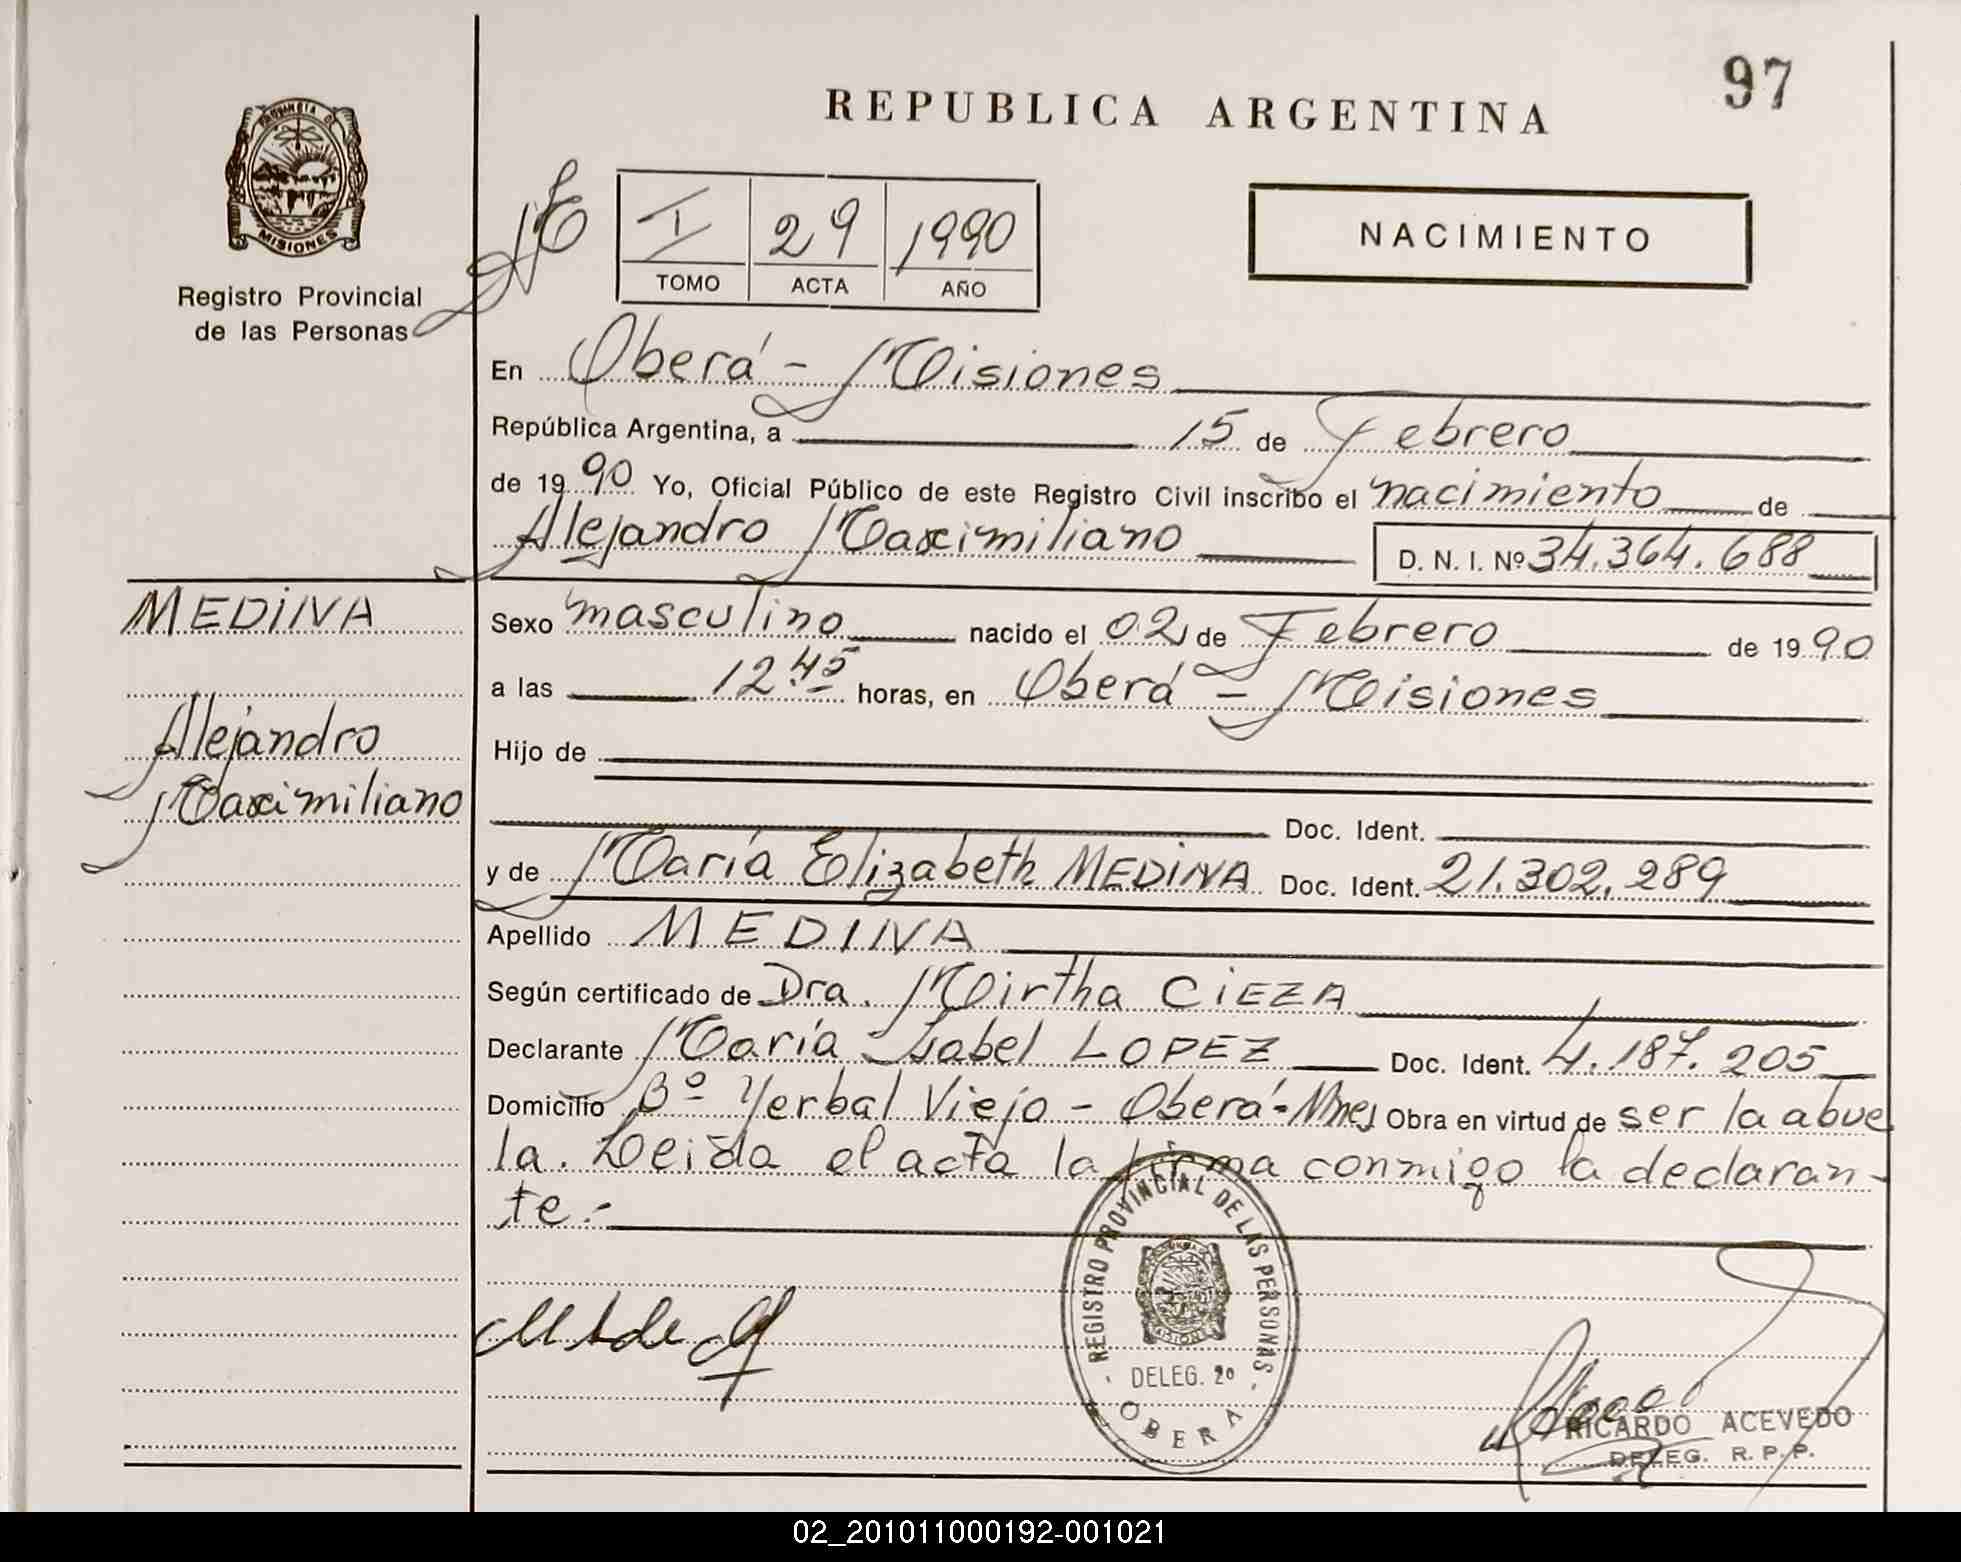 97
REPUBLICA ARGENTINA
PROVINCIA DE
MISIONES
Registro Provincial
de las Personas
I 29 1990
TOMO ACTA AÑO
NACIMIENTO
En Oberá - Misiones
República Argentina, a 15 de Febrero
de 1990 Yo, Oficial Público de este Registro Civil inscribo el nacimiento de
Alejandro Maximiliano D. N. I. Nº 34.364.688
MEDINA
Alejandro
Maximiliano
Sexo masculino nacido el 02 de Febrero de 1990
a las 12 45 horas, en Oberá - Misiones
Hijo de
Doc. Ident.
y de María Elizabeth MEDINA Doc. Ident. 21.302.289
Apellido MEDINA
Según certificado de Dra. Mirtha CIEZA
Declarante María Isabel LOPEZ Doc. Ident. 4.187.205
Domicilio Bº Yerbal Viejo - Oberá - Mnes Obra en virtud de ser la abue
la. Leida el acta la firma conmigo la declaran-
te.-
REGISTRO PROVINCIAL DE LAS PERSONAS
MISIONES
- DELEG. 2º -
OBERA
RICARDO ACEVEDO
DELEG. R. P. P.
02_201011000192-001021